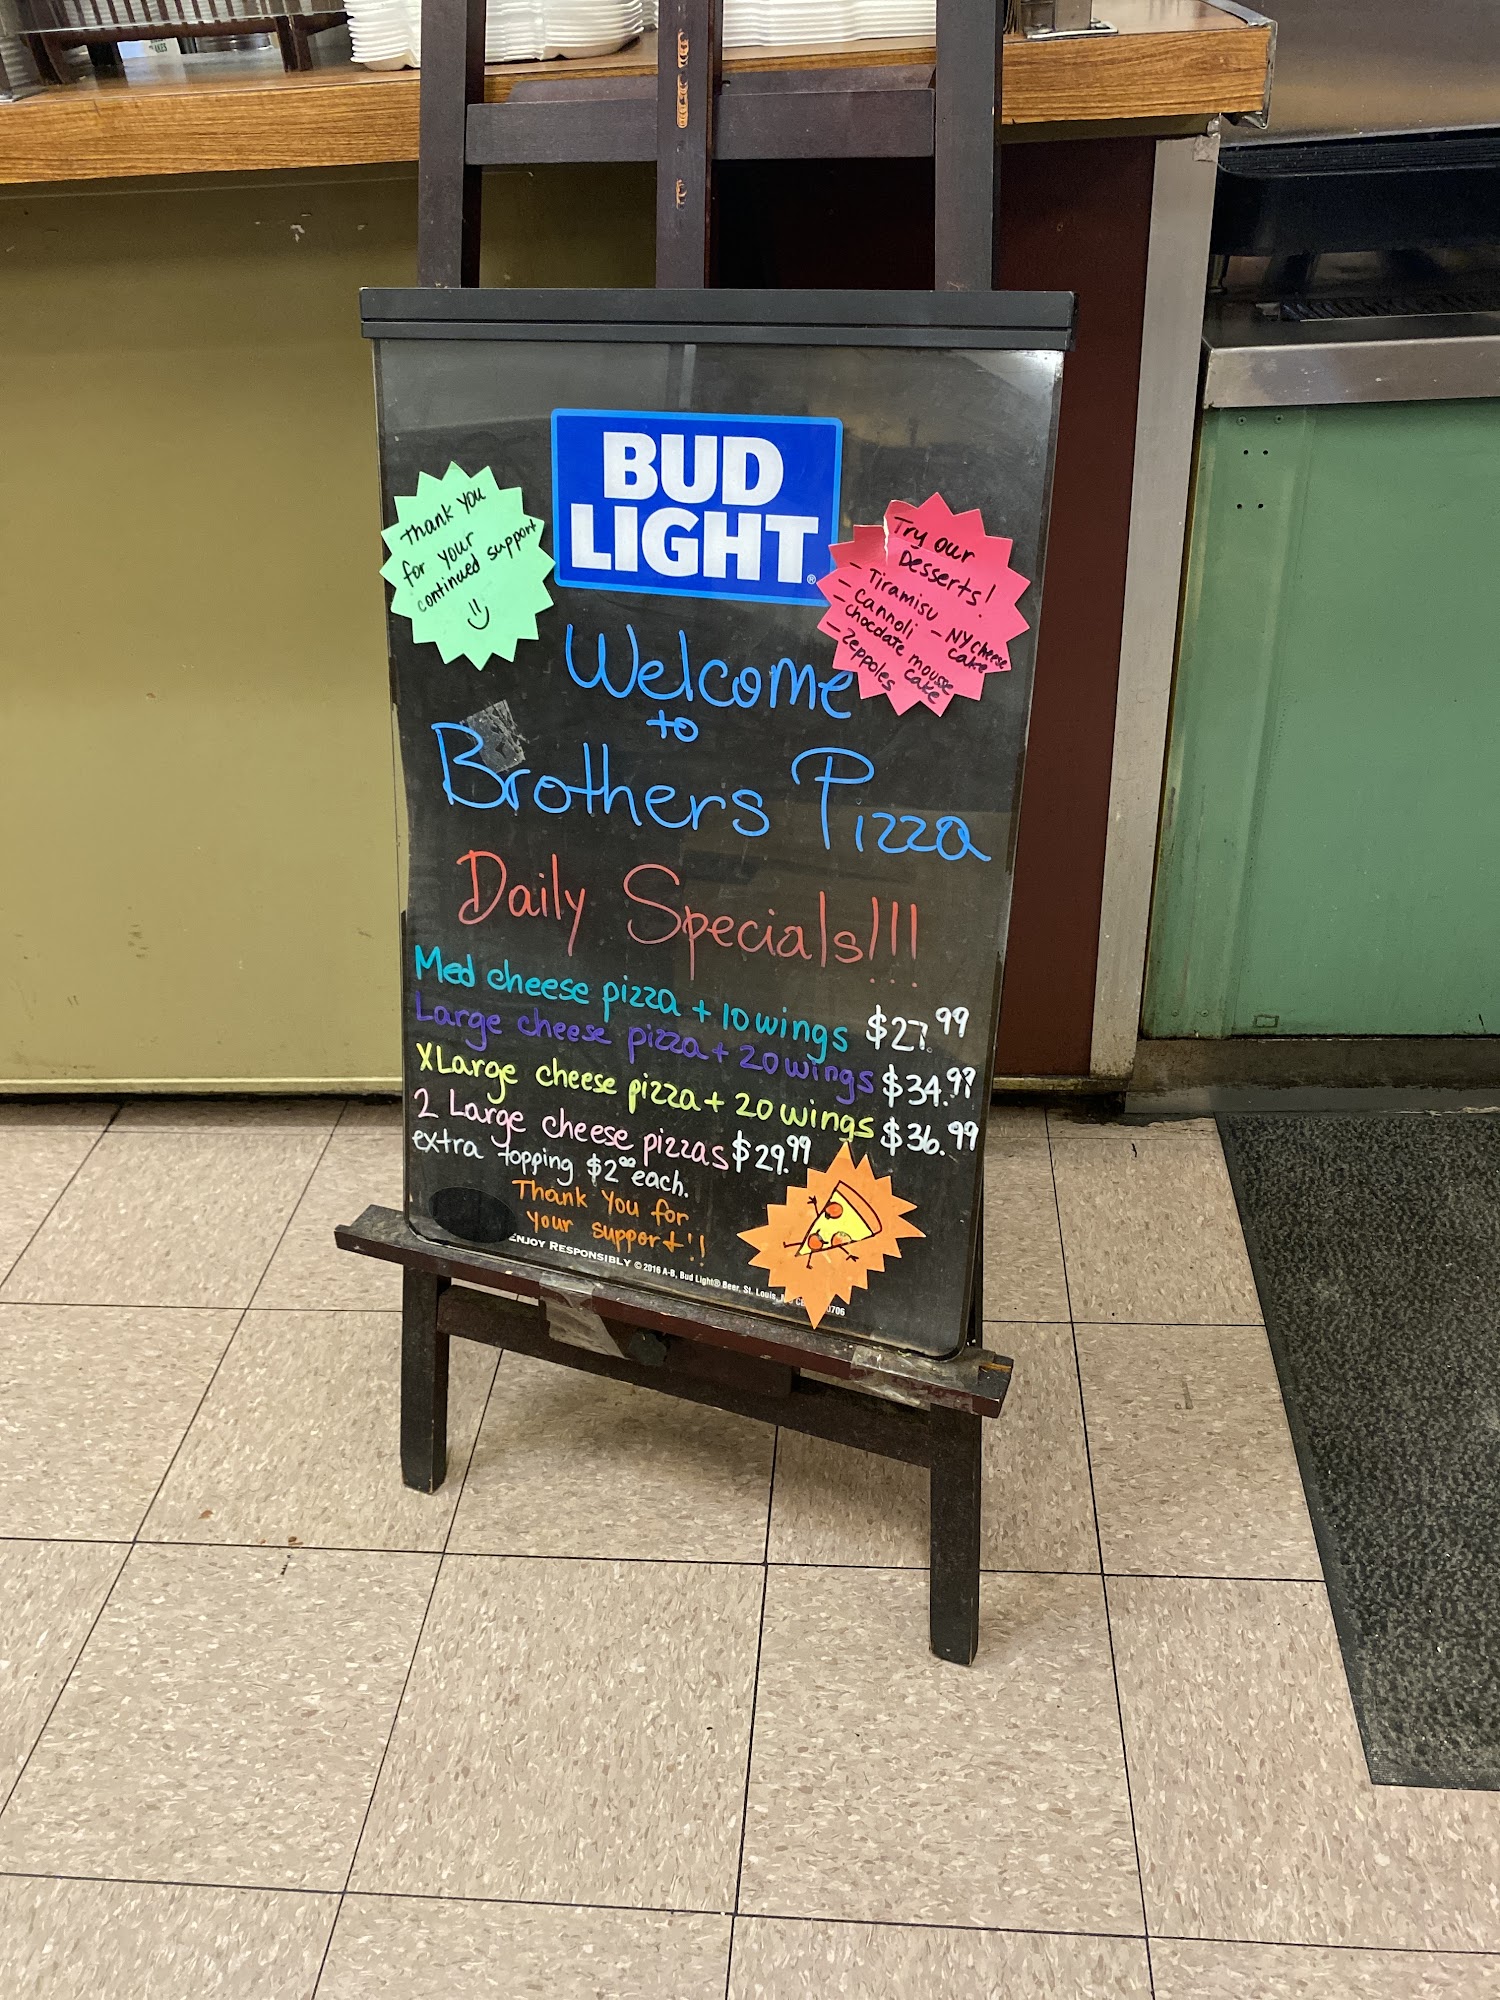 BUD
LIGHT®
Thank you
for your
continued support
Try our
Desserts!
- Tiramisu
- cannoli
- NY cheese
cake
- chocolate mousse
cake
- zeppoles
Welcome
to
Brothers Pizza
Daily Specials!!!
Med cheese pizza + 10 wings $27.99
Large cheese pizza + 20 wings $34.99
XLarge cheese pizza + 20 wings $36.99
2 Large cheese pizzas $29.99
extra topping $2.00 each.
Thank You for
your support!!
ENJOY RESPONSIBLY © 2016 A-B, Bud Light® Beer, St. Louis,